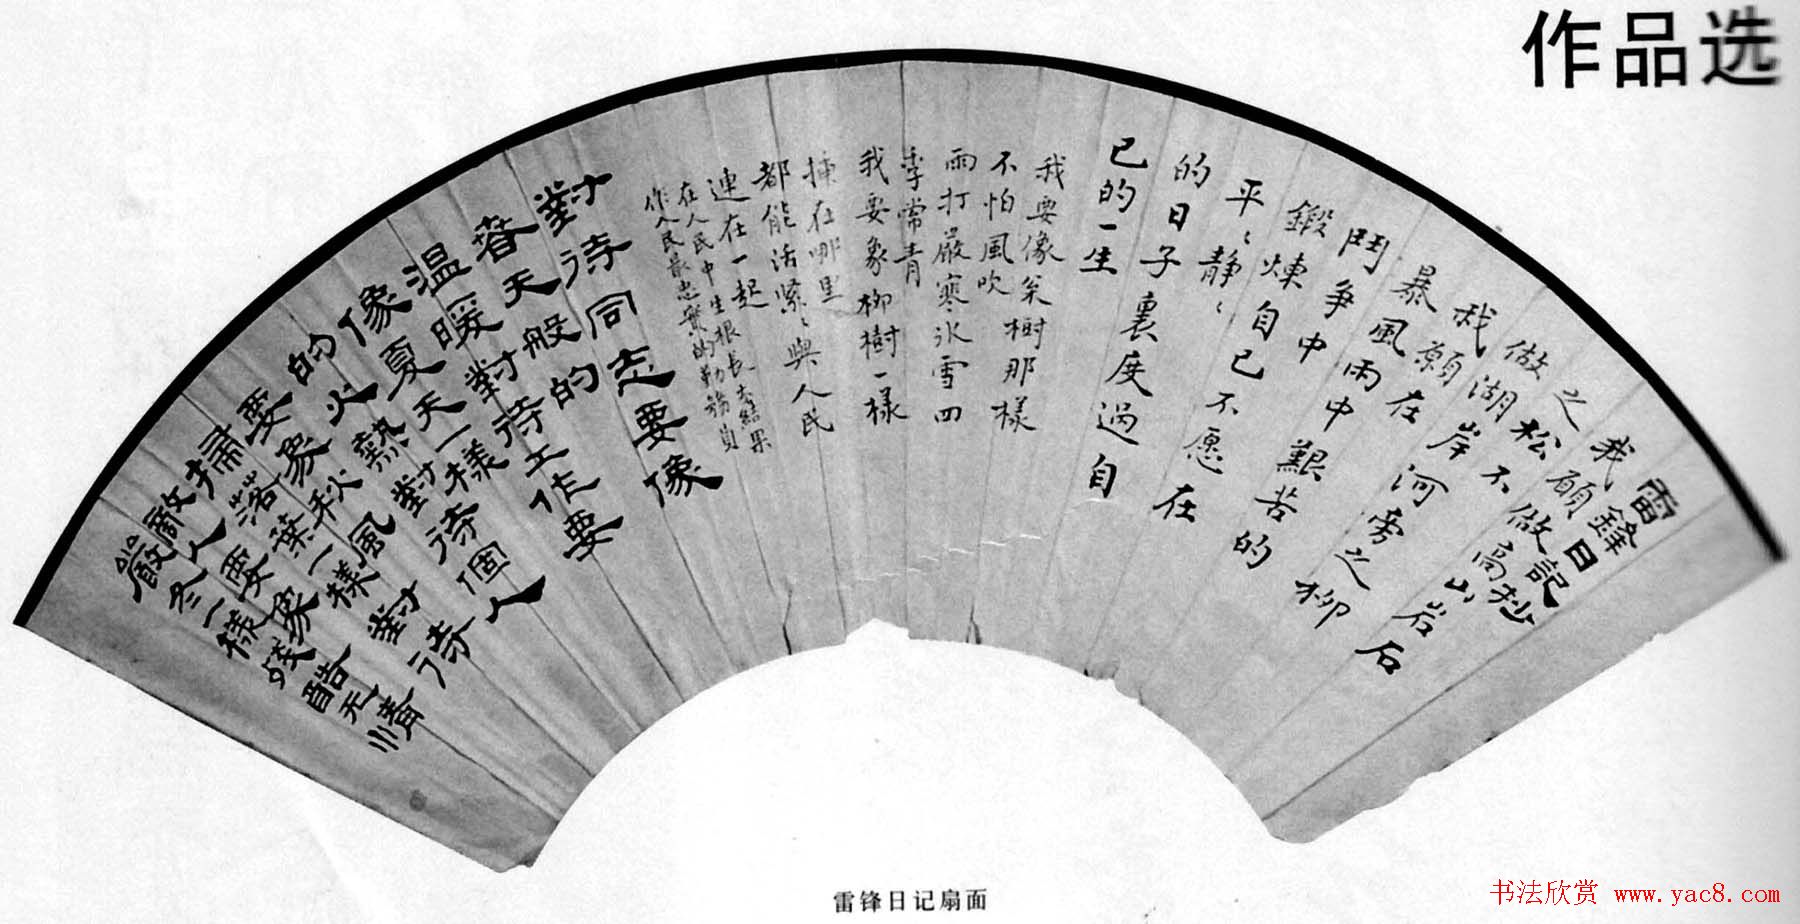 作品选
雷鋒日記抄
我願做高山岩石
之松不
做湖岸河旁之柳
我願在
暴風雨中艱苦的
鬥爭中
鍛煉自己不愿在
平〻靜〻
的日子裏度過自
己的一生
我要像松樹那樣
不怕風吹
雨打嚴寒冰雪四
季常青
我要象柳樹一樣
插在哪里
都能活緊〻與人民
連在一起
在人民中生根長大結果
作人民最忠實的勤務員
對待同志要像
春天般的
溫暖對待工作要
像夏天一樣
的火熱對待個人
要象秋風
掃落葉一樣對待
敵人要象
嚴冬一樣殘酷无情
雷锋日记扇面
书法欣赏 www.yac8.com